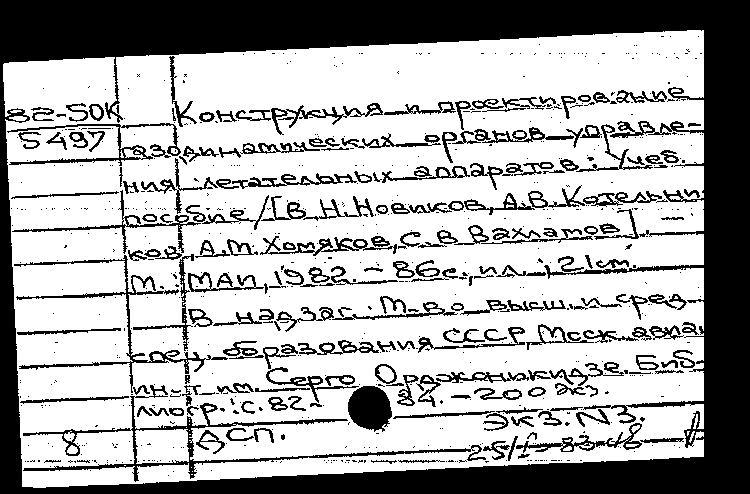 82-5ОК Конструкция и проектирование
5497 газодинамических органов управле-
ния летательных аппаратов: Учеб.
пособие /[В.Н.Новиков, А.В.Котельни-
ков, А.М.Хомяков, С.В.Вахлатов]. —
М.: МАИ, 1982. - 86с., ил.; 21см.
В надзас.: М-во высш. и сред.
спец. образования СССР, Моск. авиац.
ин-т им. Серго Орджоникидзе. Биб-
лиогр.: с. 82- 84. - 200 экз.
ДСП. Экз. N3.
8